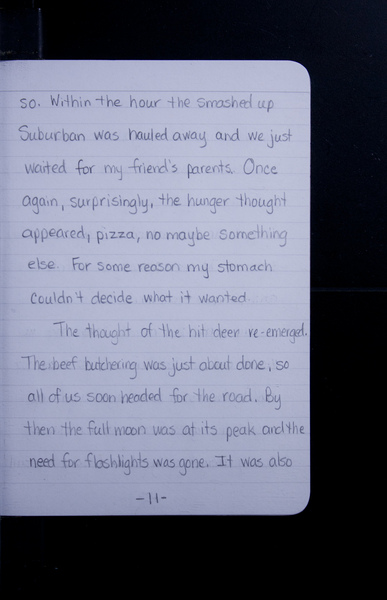 so. Within the hour the smashed up
Suburban was hauled away and we just
waited for my friend's parents. Once
again, surprisingly, the hunger thought
appeared, pizza, no maybe something
else. For some reason my stomach
couldn't decide what it wanted.
The thought of the hit deer re-emerged.
The beef butchering was just about done, so
all of us soon headed for the road. By
then the full moon was at its peak and the
need for flashlights was gone. It was also
-11-